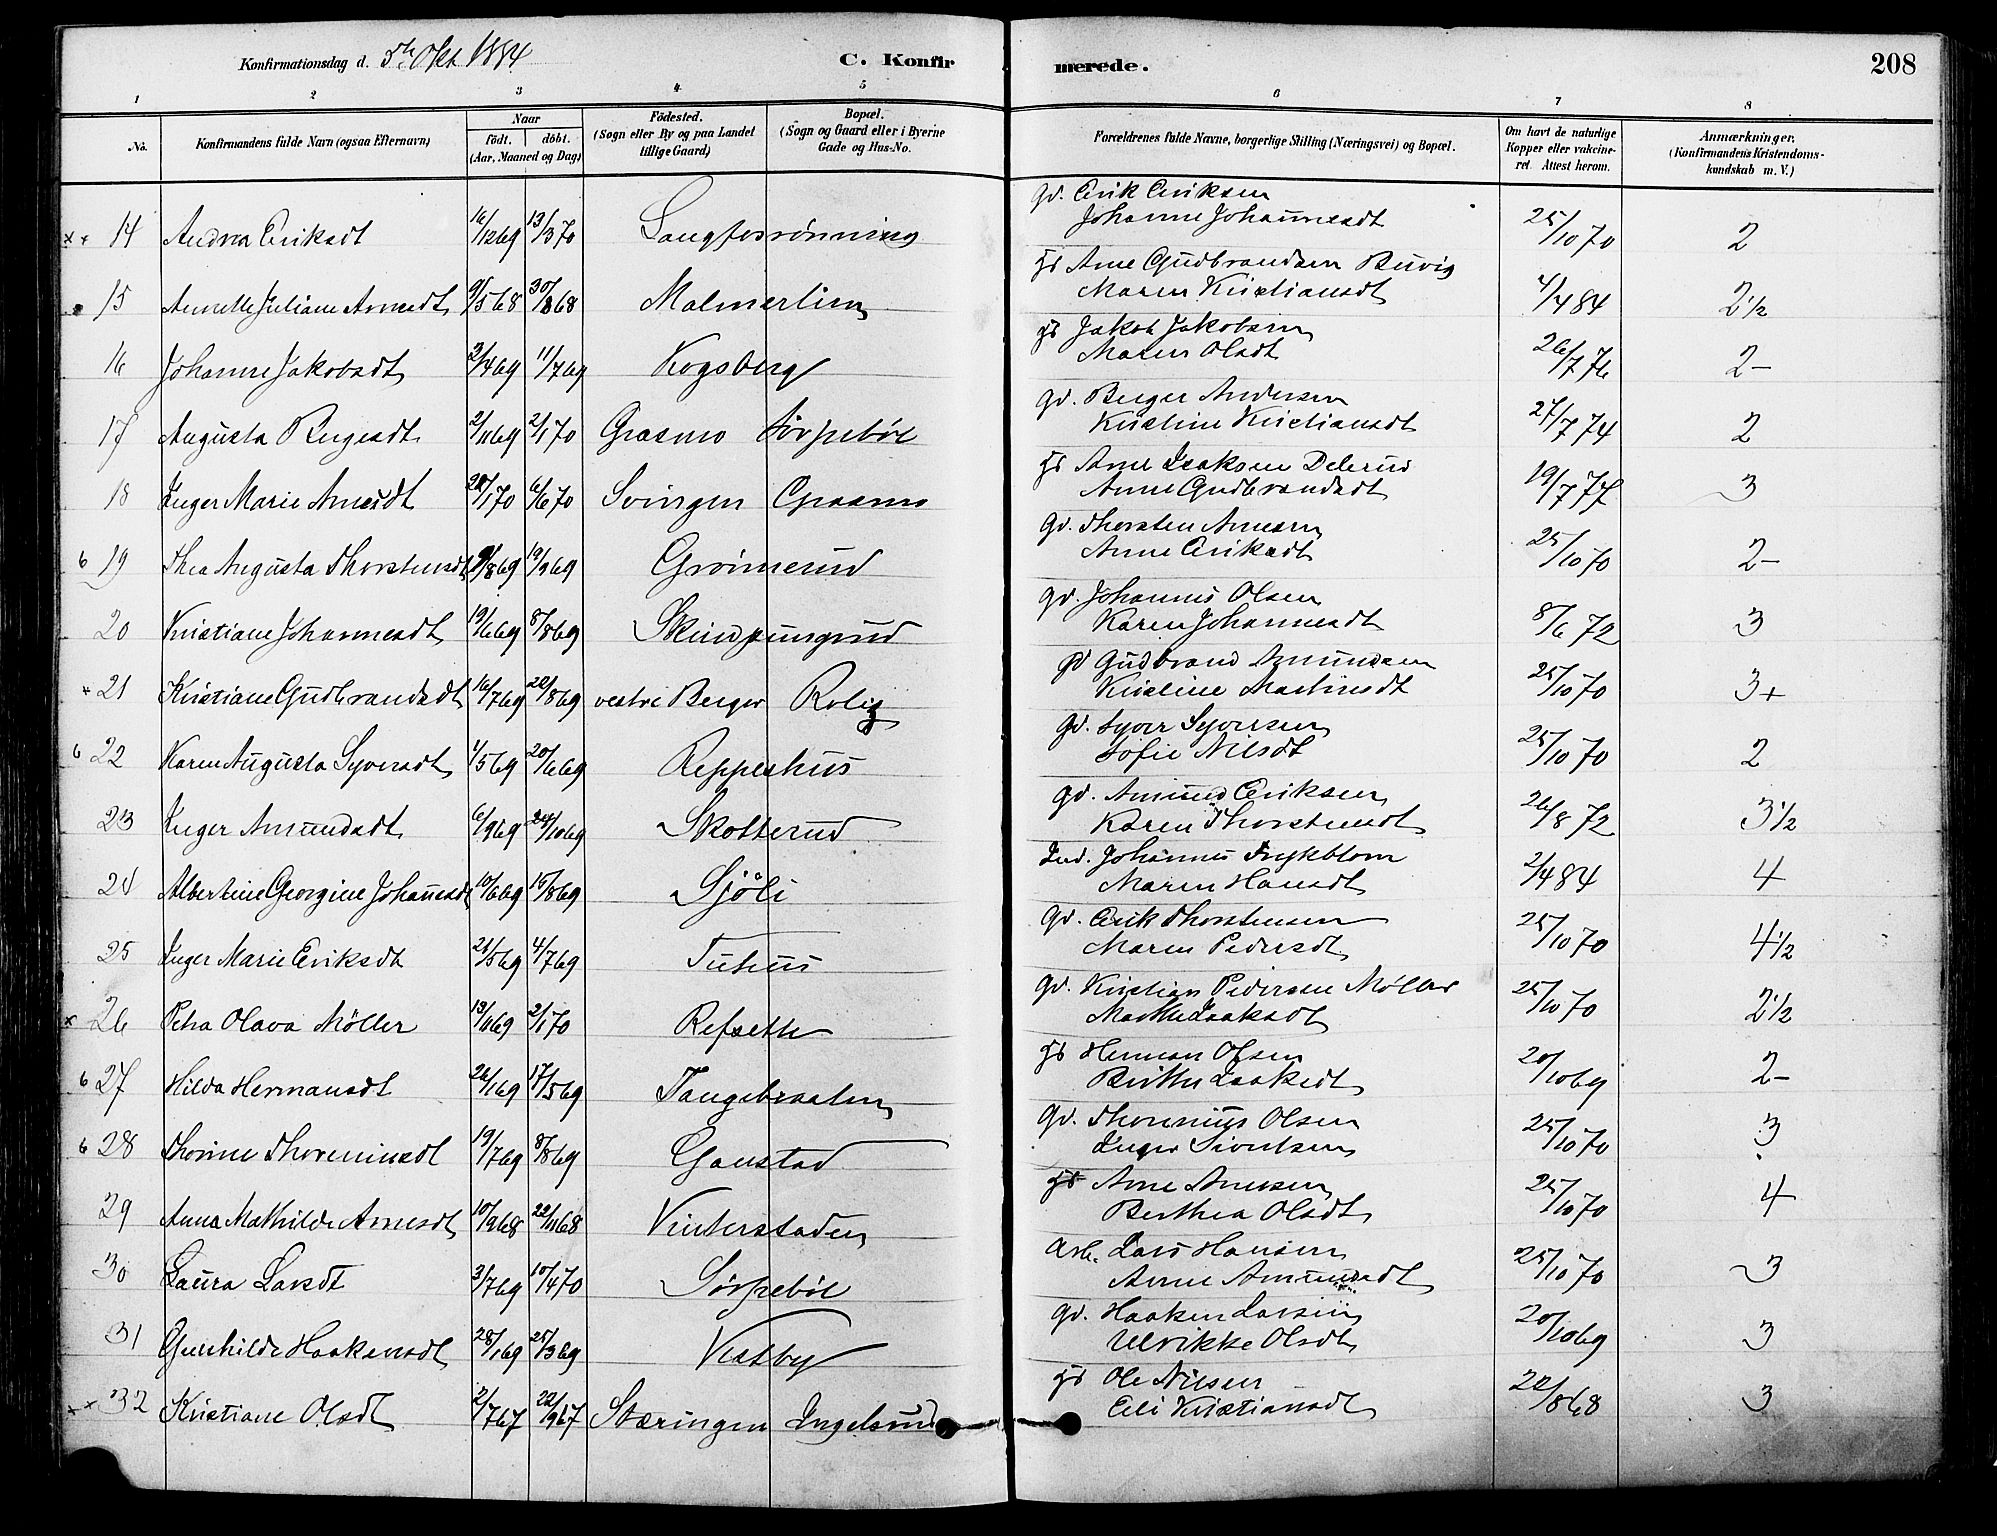 Konfirmationsdag d. 5te Okt 1884
C. Konfirmerede.
208
1 2 3 4 5 6 7 8
No.
Konfirmandens fulde Navn (ogsaa Efternavn)
Naar
födt. döbt.
(Aar, Maaned og Dag)
Födested.
(Sogn eller By og paa Landet
tillige Gaard)
Bopæl.
(Sogn og Gaard eller i Byerne
Gade og Hus-No.
Forældrenes fulde Navne, borgerlige Stilling (Næringsvei) og Bopæl.
Om havt de naturlige
Kopper eller vakcine-
ret. Attest herom.
Anmærkninger.
(Konfirmandens Kristendoms-
kundskab m. V.)
14 Andrea Eriksdt 16/12 69 13/3 70 Langforrönning Gd. Erik Eriksen
Johanne Johannesdt 25/10 70 2
15 Annette Juliane Arnesdt 9/5 68 30/8 68 Malmerlien Hd Arne Gudbrandsen Buvig
Maren Kristiansdt 4/4 84 2 1/2
16 Johanne Jakobsdt 2/4 69 11/7 69 Kogsberg Hd Jakob Jakobsen
Maren Olsdt 26/7 76 2-
17 Augusta Bergesdt 2/11 69 2/1 70 Grasmo Sörpeböl Gd. Berger Andersen
Kristine Kristiansdt 27/7 74 2
18 Inger Marie Arnesdt 28/1 70 6/6 70 Svingen Graasmo Hd Arne Isaksen Delerud
Anne Gudbrandsdt 19/7 77 3
6 19 Thea Augusta Thorstensdt 9/8 69 19/9 69 Groimerud Gd. Thorsten Arnesen
Anne Eriksdt 25/10 70 2-
20 Kristiane Johannesdt 19/6 69 8/8 69 Skindpungrud Gd. Johannes Olsen
Karen Johannesdt 8/6 72 3
21 Kristiane Gudbrandsdt 16/7 69 22/8 69 vestre Berger Rolig Gd Gudbrand Amundsen
Kristine Martinsdt 25/10 70 3+
6 22 Karen Augusta Syversdt 1/5 69 20/6 69 Reppeshus Gd. Syver Syversen
Sofie Nilsdt 25/10 70 2
23 Inger Amundsdt 6/9 69 24/10 69 Skotterud Gd. Amund Eriksen
Karen Thorstensdt 26/8 72 3 1/2
24 Albertine Georgine Johannesdt 10/6 69 15/8 69 Sjöli Ind. Johannes Frykblom
Maren Hansdt 2/4 84 4
25 Inger Marie Eriksdt 21/5 69 4/7 69 Tuhus Gd. Erik Thorstensen
Maren Pedersdt 25/10 70 4 1/2
x 26 Petra Olava Möller 13/11 69 2/1 70 Refsette Gd. Kristian Pedersen Möller
Marthe Isaksdt 25/10 70 2 1/2
6 27 Hilda Hermansdt 26/1 69 17/5 69 Tangebraaten Hd Herman Olsen
Berthe Isaksdt 20/10 69 2-
6 28 Thorine Thoreniusdt 19/7 69 8/8 69 Gaustad Gd. Thorenius Olsen
Inger Sivertsen 25/10 70 3
29 Anna Mathilde Arnesdt 10/9 68 22/11 68 Vinterstaden Hd Arne Arnesen
Berthea Olsdt 25/10 70 4
30 Laura Larsdt 3/7 69 10/4 70 Sörpeböl Arb. Lars Hansen
Anne Amundsdt 25/10 70 3
31 Gunhilde Haakensdt 28/1 69 25/3 69 Vestby Gd. Haaken Larsen
Ulrikke Olsdt 20/10 69 3
xx 32 Kristiane Olsdt 2/7 67 22/9 67 Stæringen Ingelsrud Hd Ole Nilsen
Eli Kristiansdt 22/8 68 3